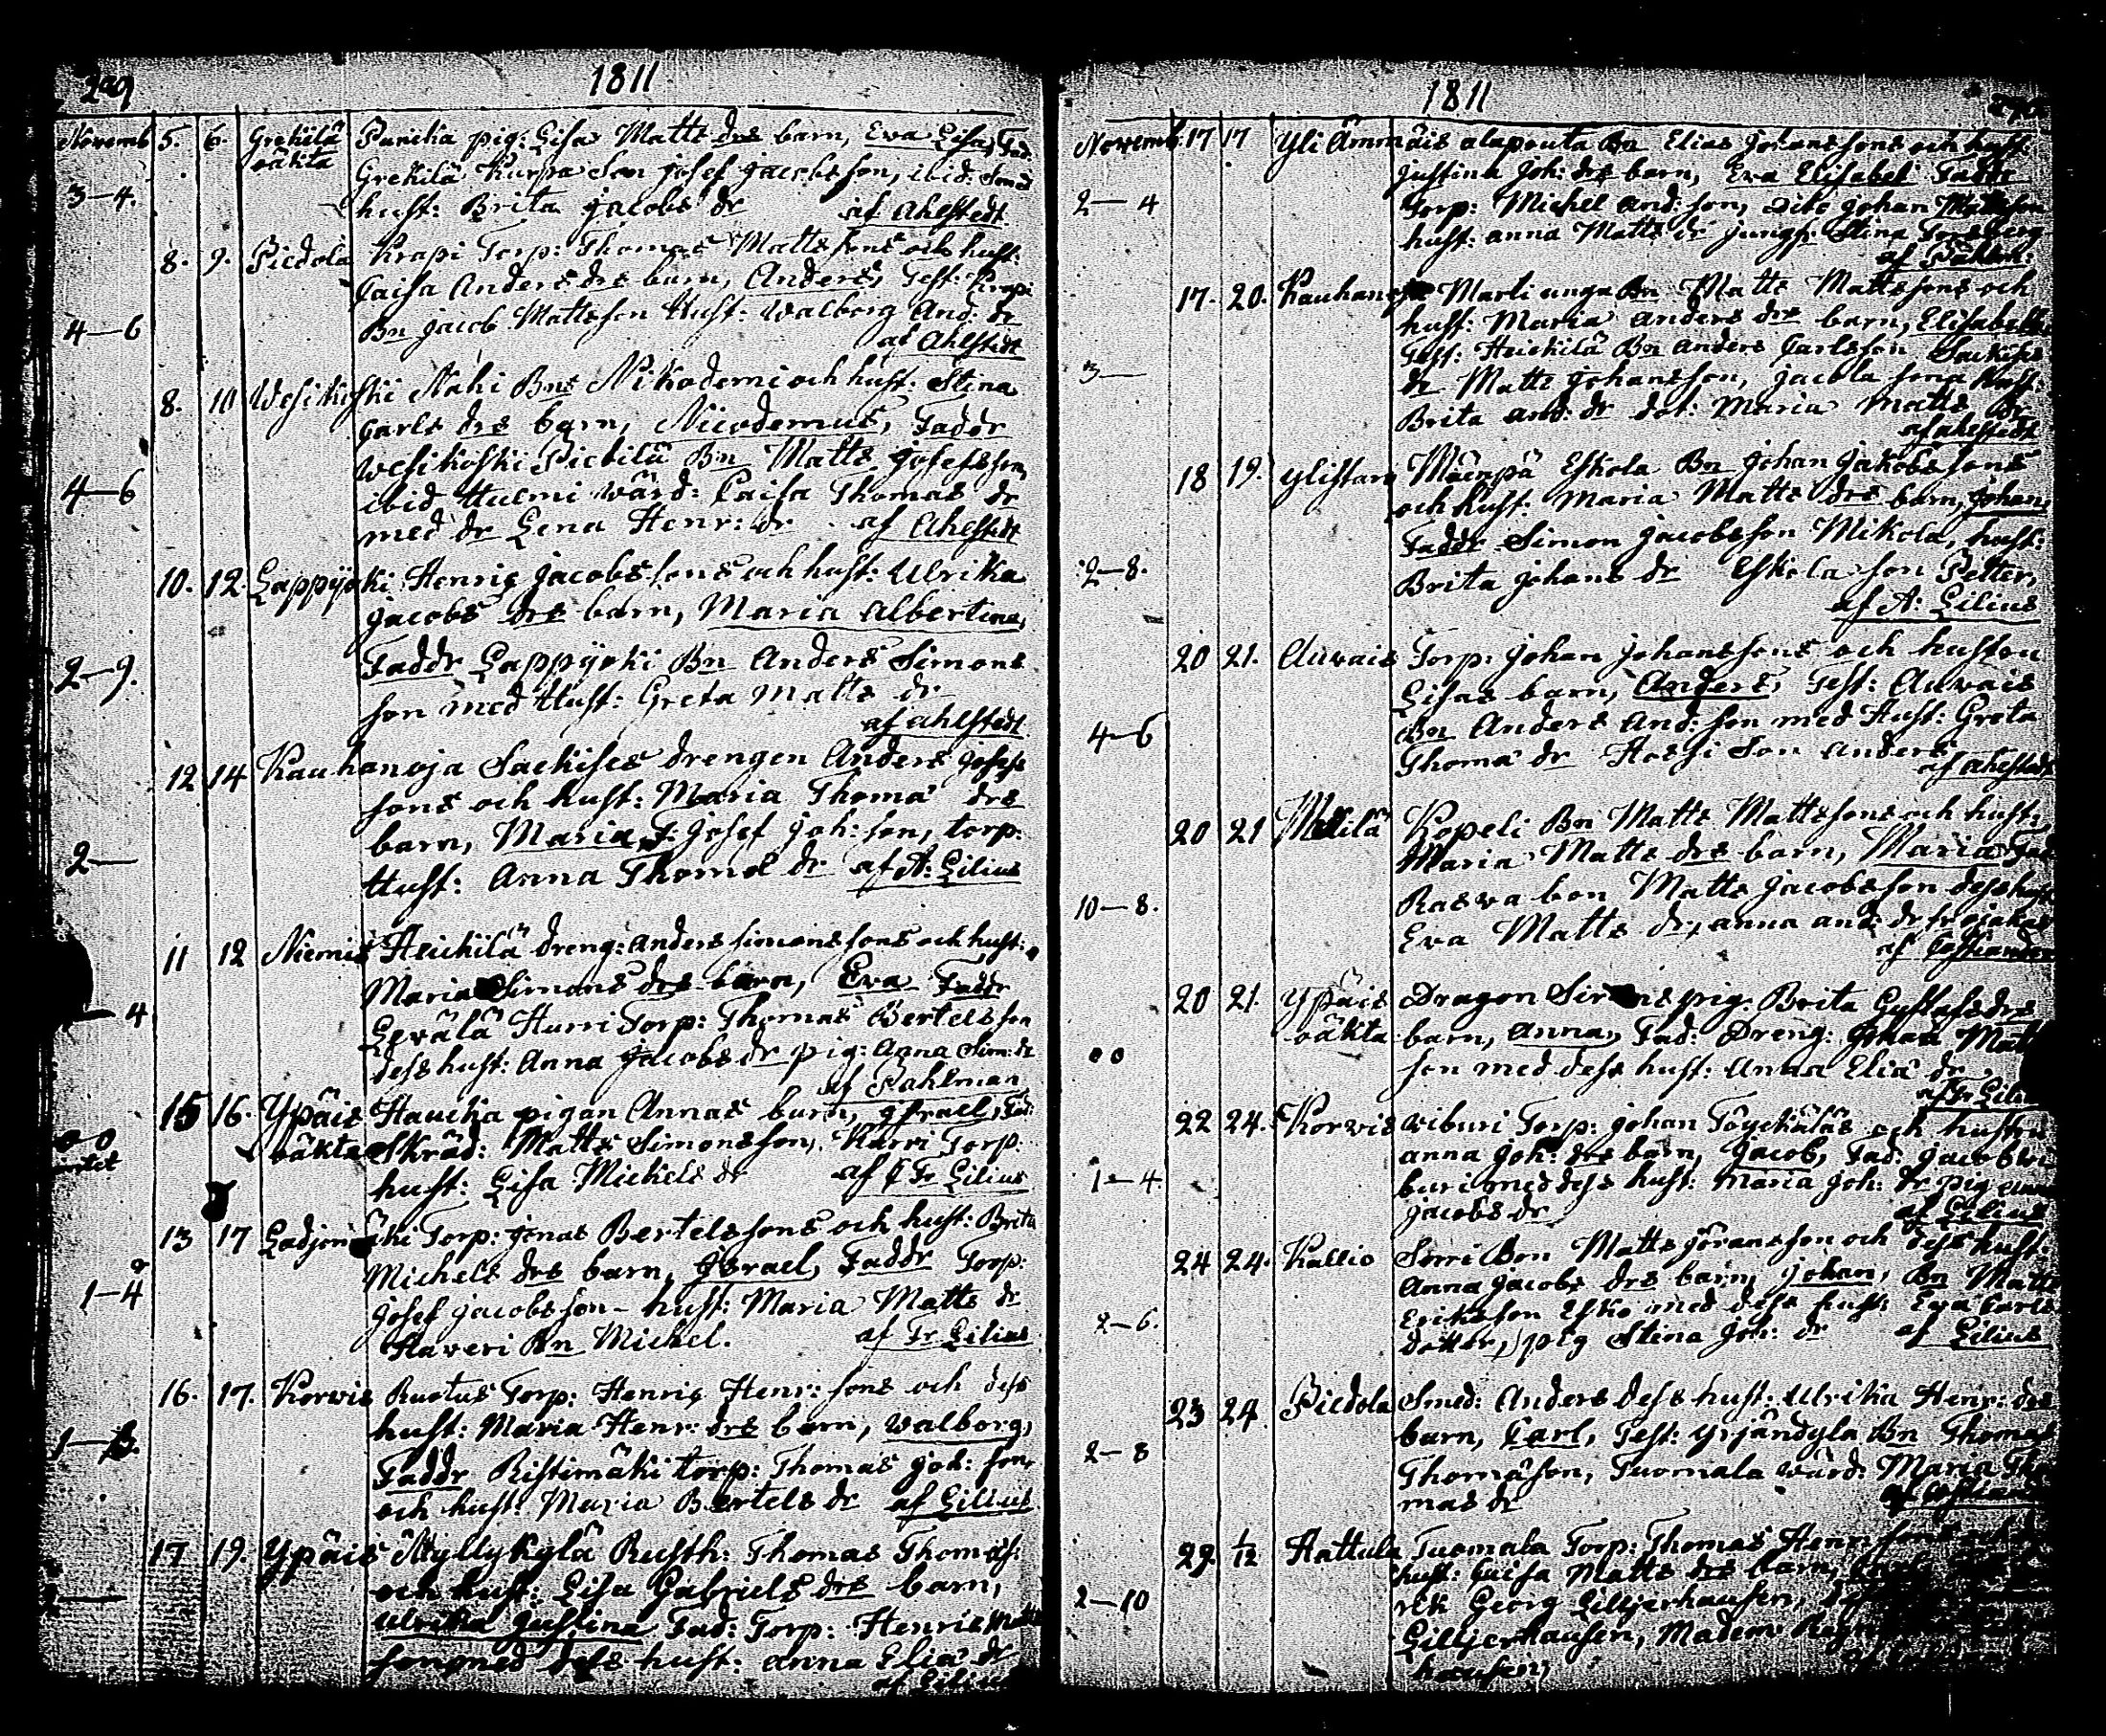 299
1811
Novemb 5. 6. Grekilä Puncka pig: Lisa Matts drs barn, Eva Lisa, Fad:
oäkta Grekilä Kurpa Son Josef Jacobsson, ibid: Smed
3—4. hust: Brita Jacobs dr af Ahlstedt
8. 9. Piedola Krapi Torp: Thomas Mattssons och hust:
Caisa Anders drs barn, Anders, Test: Krapi
4—6 Bn Jacob Mattsson Hust: Walborg And: dr
af Ahlstedt
8. 10 Wesikoski Nahi Bns Nikodemi och hust: Stina
Carls drs barn, Nicodemus, Faddr
Wesikoski Pietilä Bn Matts Josefsson,
4—6 ibid Huemi Wärd: Caisa Thomas dr
med dr Lena Henr: dr af Ahlstedt
10. 12. Lappijoki Henric Jacobssons och hust: Ulrika
Jacobs drs barn, Maria Albertina,
Faddr Lappijoki Bn Anders Simons
2—9. son med Hust: Greta Matts dr
af Ahlstedt
12 14 Kauhanoja Sackises drengen Anders Josefs
sons och hust: Maria Thoma drs
barn, Maria, F: Josef Joh: son, torp:
2— Hust: Anna Thomæ dr af A: Lilius
11 12 Niemis Heickilä dreng: Anders Simonssons och hust:
Maria Simons drs barn, Eva Faddr
4 Levälä Hurri Torp: Thomas Bertelsson
dess hust: Anna Jacobs dr pig: Anna Sim: dr
af Pahlman
15 16. Ypäis Haucka pigan Annas barn, Israel, Fad:
0—0 oäkta Skräd: Matts Simonsson, Karri Torp:
hust: Lisa Michels dr af Fr Lilius
13 17 Ladjomäki Torp: Jonas Bertelssons och hust: Brita
Michels drs barn, Israel, Faddr Torp:
1—4 Josef Jacobsson - hust: Maria Matts dr
Haveri Bn Michel. af Fr. Lilius
16. 17. Korvis Ruotus Torp: Henric Henr: sons och dess
hust: Maria Henr: drs barn, Walborg,
Faddr Ristimäki torp: Thomas Joh: son,
och hust: Maria Bertels dr af Lilius
17 19. Ypäis Myllykylä Rusth: Thomas Thomass:
och hust: Lisa Gabriels drs barn,
2— Ulrika Justina Fad: Torp: Henric Matts
son med dess hust: Anna Elia dr
af Lilius
1811
Novemb: 17 17 Yli Ämmäis alapouta Bn Elias Johanssons och hust
Justina Joh: drs barn, Eva Elisabet Faddr
2—4 Torp: Michel And: son, dito Johan Mattsson
hust: Anna Matts dr Jungfr Stina Forsberg
af Pahlm:
17. 20. Kauhanoja Marti unga Bn Matts Mattssons och
hust: Maria Anders drs barn, Elisabeth
3— Test: Heickilä Bn Anders Carlsson Sackises
dr Matts Johansson, Jacola sona hust:
Brita And: dr dot: Maria Matts dr
af Ahlstedt
18 19. Ylistaro Mäenpä Eskola Bn Johan Jakobssons
och hust: Maria Matts drs barn, Johan,
Faddr Simon Jacobsson Mikola, hust:
2—8. Brita Johans dr Eskola son Petter,
af A: Lilius
20 21. Auvais Torp: Johan Johanssons och hustru
Lisas barn, Anders, Test: Auvais
4—6 Bn Anders And: son med Hust: Greta
Thoma dr Hossi Son Anders
af Ahlstedt
20 21 Mellilä Kopeli Bn Matts Mattssons och hust:
Maria Matts drs barn, Maria Fad
10—8. Rasva bon Matts Jacobsson dess hust
Eva Matts dr, Anna And: dr
20 21. Ypäis Dragon Sirens pig. Brita Gustafs drs
oäkta barn, Anna, Fad: Dreng: Johan Matt
0 0 son med dess hust: Anna Elia dr
af Fr Lilius
22 24. Korvis Wiburi Torp: Johan Töyckäläs och hustru
Anna Joh: drs barn, Jacob, Fad: Jacob Wi
1—4. buri med dess hust: Maria Joh: dr pig Anna
Jacobs dr af Lilius
24 24. Kallio Sorri Bon Matts Göransson och dess hust:
Anna Jacobs drs barn, Johan, Bn Matts
2—6. Eriksson Esko med dess hust: Eva Carls
dotter, pig Stina Joh: dr af Lilius
23 24 Piedola Smed: Anders dess hust: Ulrika Henr: drs
barn, Carl, Test: Yrjändyla Bn Thomas
2—8 Thomasson, Tuomala wärd: Maria Tho
mas dr
29. 1/12 Hattula Tuomala Torp: Thomas Henr: sons
hust: Caisa Matts drs barn,
2—10 rik Georg Lilljerhausen,
Lilljerhausen, Madem:
hausen,